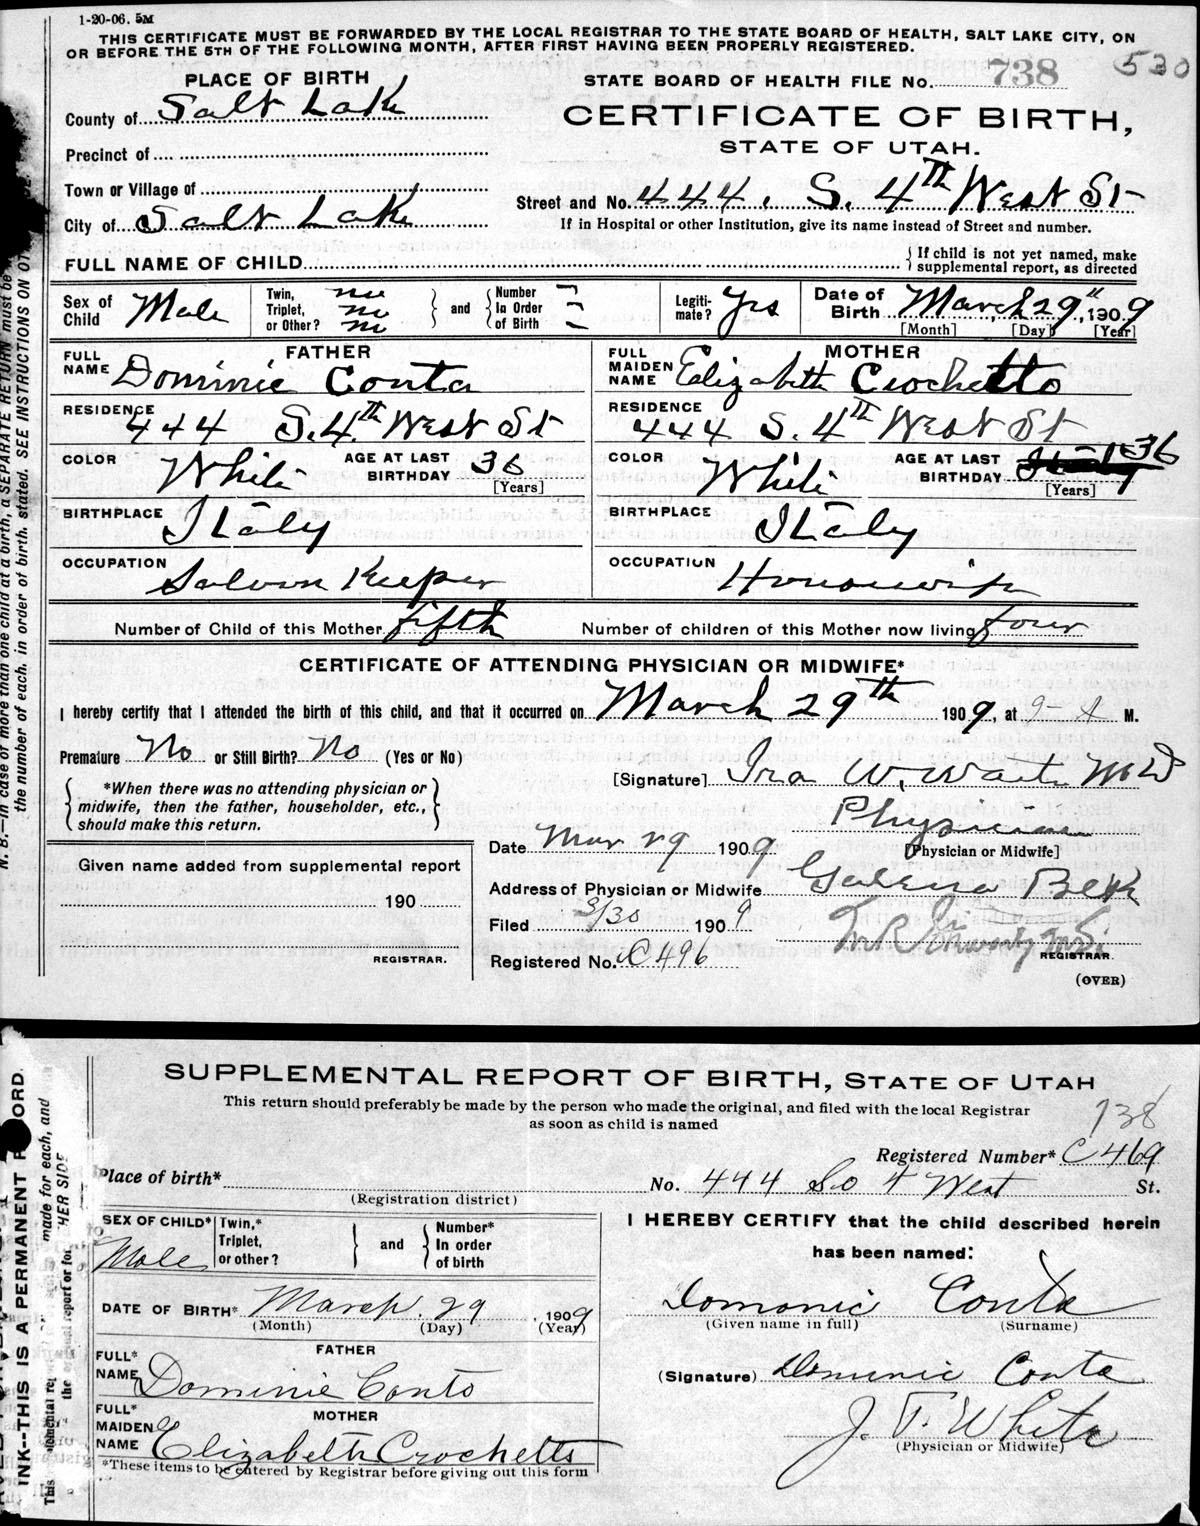 1-20-06. 5M
THIS CERTIFICATE MUST BE FORWARDED BY THE LOCAL REGISTRAR TO THE STATE BOARD OF HEALTH, SALT LAKE CITY, ON
OR BEFORE THE 5TH OF THE FOLLOWING MONTH, AFTER FIRST HAVING BEEN PROPERLY REGISTERED.
530
PLACE OF BIRTH
STATE BOARD OF HEALTH FILE No. 738
County of Salt Lake
CERTIFICATE OF BIRTH,
STATE OF UTAH.
Precinct of
Town or Village of
Street and No. 444. S. 4th West St
City of Salt Lake
If in Hospital or other Institution, give its name instead of Street and number.
FULL NAME OF CHILD
If child is not yet named, make
supplemental report, as directed
Sex of Child Male
Twin, no
Triplet, no
or Other? no
and
Number
In Order
of Birth
Legiti-
mate? Yes
Date of
Birth March 29th, 1909
[Month] [Day] [Year]
FATHER
FULL NAME Dominic Conta
MOTHER
FULL MAIDEN NAME Elizabeth Crochetto
RESIDENCE 444 S. 4th West St
RESIDENCE 444 S. 4th West St
COLOR White
AGE AT LAST BIRTHDAY 36
[Years]
COLOR White
AGE AT LAST BIRTHDAY 36
[Years]
BIRTHPLACE Italy
BIRTHPLACE Italy
OCCUPATION Saloon Keeper
OCCUPATION Housewife
Number of Child of this Mother fifth
Number of children of this Mother now living four
CERTIFICATE OF ATTENDING PHYSICIAN OR MIDWIFE*
I hereby certify that I attended the birth of this child, and that it occurred on March 29th 1909, at 9- A M.
Premature No or Still Birth? No (Yes or No)
[Signature] Ira W. Waite MD
*When there was no attending physician or
midwife, then the father, householder, etc.,
should make this return.
Physician
[Physician or Midwife]
Date Mar 29 1909
Given name added from supplemental report
190
REGISTRAR.
Address of Physician or Midwife Galena Blk
Filed 3/30 1909
REGISTRAR.
Registered No. C 496
(OVER)
N. B.—In case of more than one child at a birth, a SEPARATE RETURN must be
the number of each, in order of birth, stated. SEE INSTRUCTIONS ON OT
SUPPLEMENTAL REPORT OF BIRTH, STATE OF UTAH
This return should preferably be made by the person who made the original, and filed with the local Registrar
as soon as child is named
738
Registered Number* C469
Place of birth*
(Registration district)
No. 444 So 4 West St.
SEX OF CHILD* Male
Twin,*
Triplet,
or other?
and
Number*
In order
of birth
I HEREBY CERTIFY that the child described herein
has been named:
DATE OF BIRTH* March 29, 1909
(Month) (Day) (Year)
Domonic Conta
(Given name in full) (Surname)
FATHER
FULL* NAME Dominic Conto
(Signature) Domunic Conta
MOTHER
FULL* MAIDEN NAME Elizabeth Crochetts
J. T. White
(Physician or Midwife)
*These items to be entered by Registrar before giving out this form
INK--THIS IS A PERMANENT
ORD.
This
made for each, and
the
HER SIDE